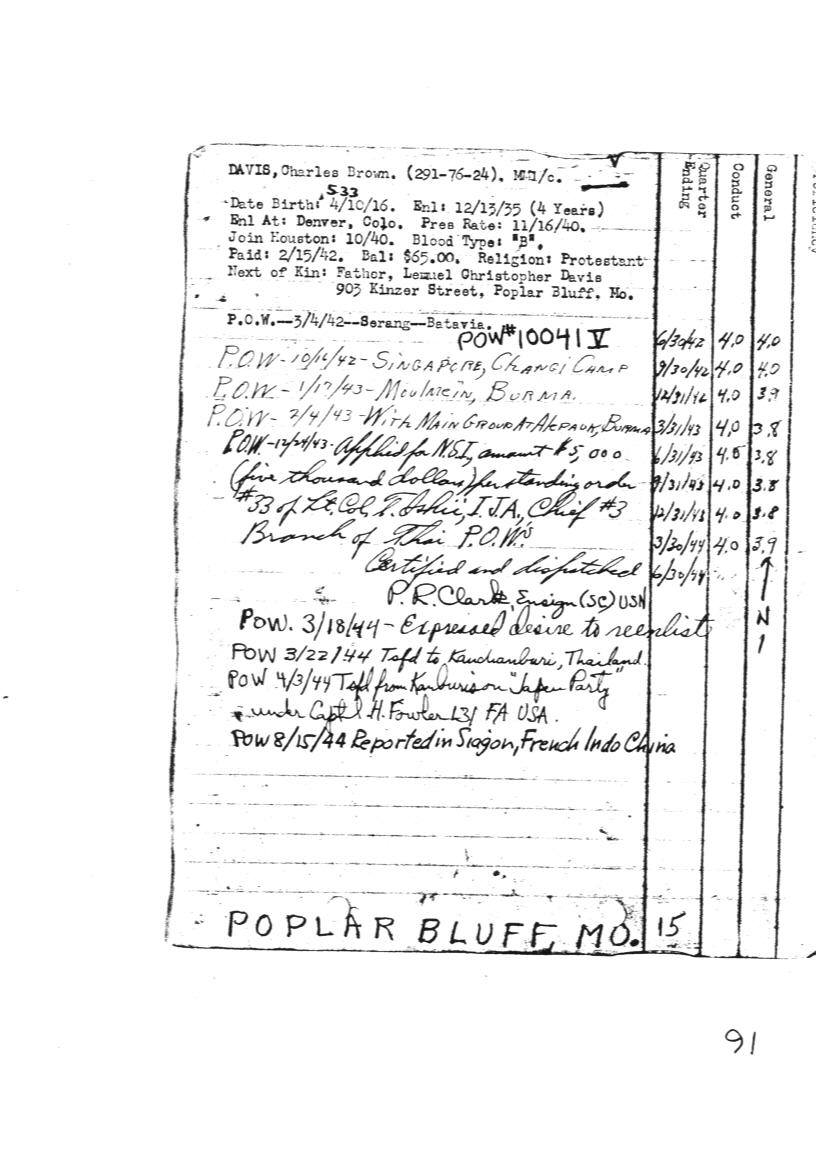 DAVIS, Charles Brown. (291-76-24). MM1/c.
533
Date Birth: 4/10/16. Enl: 12/13/35 (4 Years)
Enl At: Denver, Colo. Pres Rate: 11/16/40.
Join Houston: 10/40. Blood Type: "B".
Paid: 2/15/42. Bal: $65.00. Religion: Protestant
Next of Kin: Father, Lemuel Christopher Davis
903 Kinzer Street, Poplar Bluff, Mo.
Quarter Ending Conduct General
P.O.W.--3/4/42--Serang--Batavia.
POW# 10041 V 6/30/42 4.0 4.0
P.O.W - 10/16/42 - SINGAPORE, CHANGI CAMP 9/30/42 4.0 4.0
P.O.W. - 1/17/43 - MOULMEIN, BURMA. 12/31/42 4.0 3.9
P.O.W - 2/4/43 - WITH MAIN GROUP AT BURMA 3/31/43 4.0 3.8
P.O.W. - 12/24/43 - Applied for N.S.I, amount $5,000 6/31/43 4.0 3.8
(five thousand dollars) per standing order 9/31/43 4.0 3.8
#33 of Lt. Col. T. Ishii, I.J.A., Chief #3 12/31/43 4.0 3.8
Branch of Thai P.O.W.'s 3/30/44 4.0 3.9
Certified and dispatched 6/30/44
P. R. Clark, Ensign (SC) USN
POW. 3/18/44 - Expressed desire to reenlist
POW 3/22/44 Tsfd to Kanchanburi, Thailand.
POW 4/3/44 Tsfd from Kanburi on "Japan Party"
under Capt H. Fowler 131 FA USA.
POW 8/15/44 Reported in Siagon, French Indo China
N
1
POPLAR BLUFF, MO. 15
91